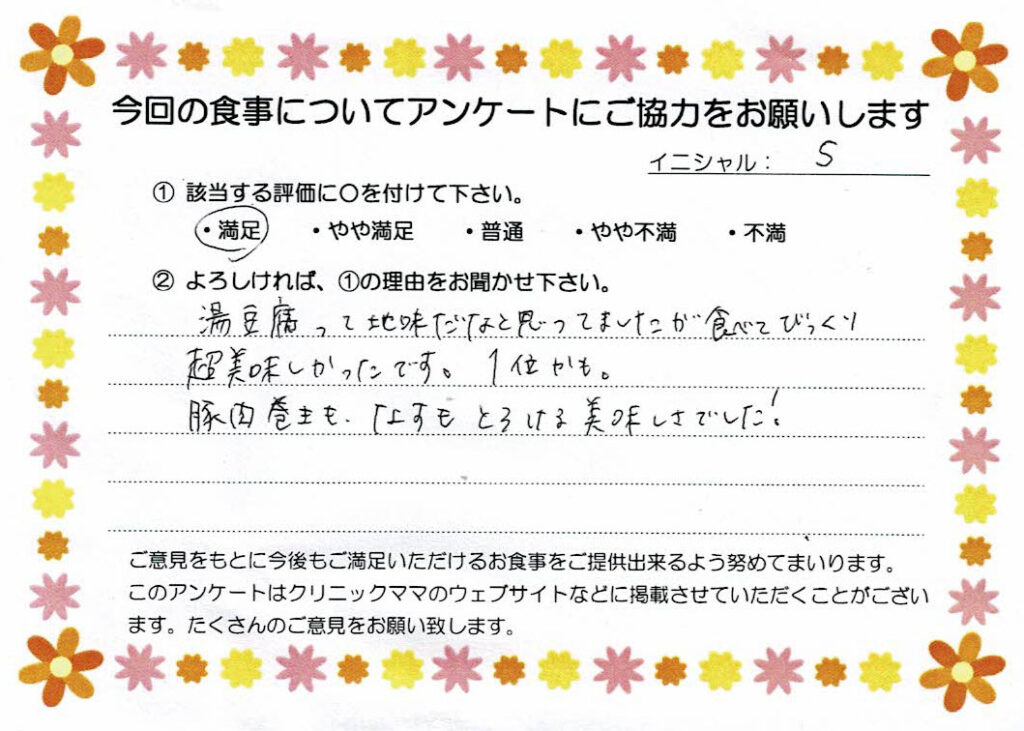 今回の食事についてアンケートにご協力をお願いします
イニシャル： S
① 該当する評価に〇を付けて下さい。
・満足 ・やや満足 ・普通 ・やや不満 ・不満
② よろしければ、①の理由をお聞かせ下さい。
湯豆腐って地味だなと思ってましたが食べてびっくり
超美味しかったです。1位かも。
豚肉巻玉も、なすもとろける美味しさでした!
ご意見をもとに今後もご満足いただけるお食事をご提供出来るよう努めてまいります。
このアンケートはクリニックママのウェブサイトなどに掲載させていただくことがござい
ます。たくさんのご意見をお願い致します。